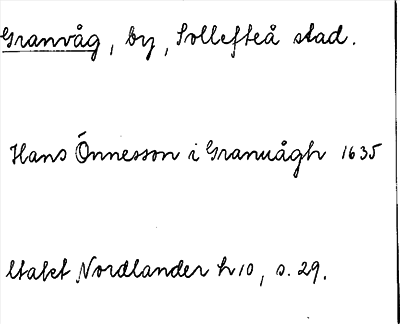 Granvåg, by, Sollefteå stad.
Hans Önnesson i Granuågh 1635
Utakt Nordlander h 10, s. 29.